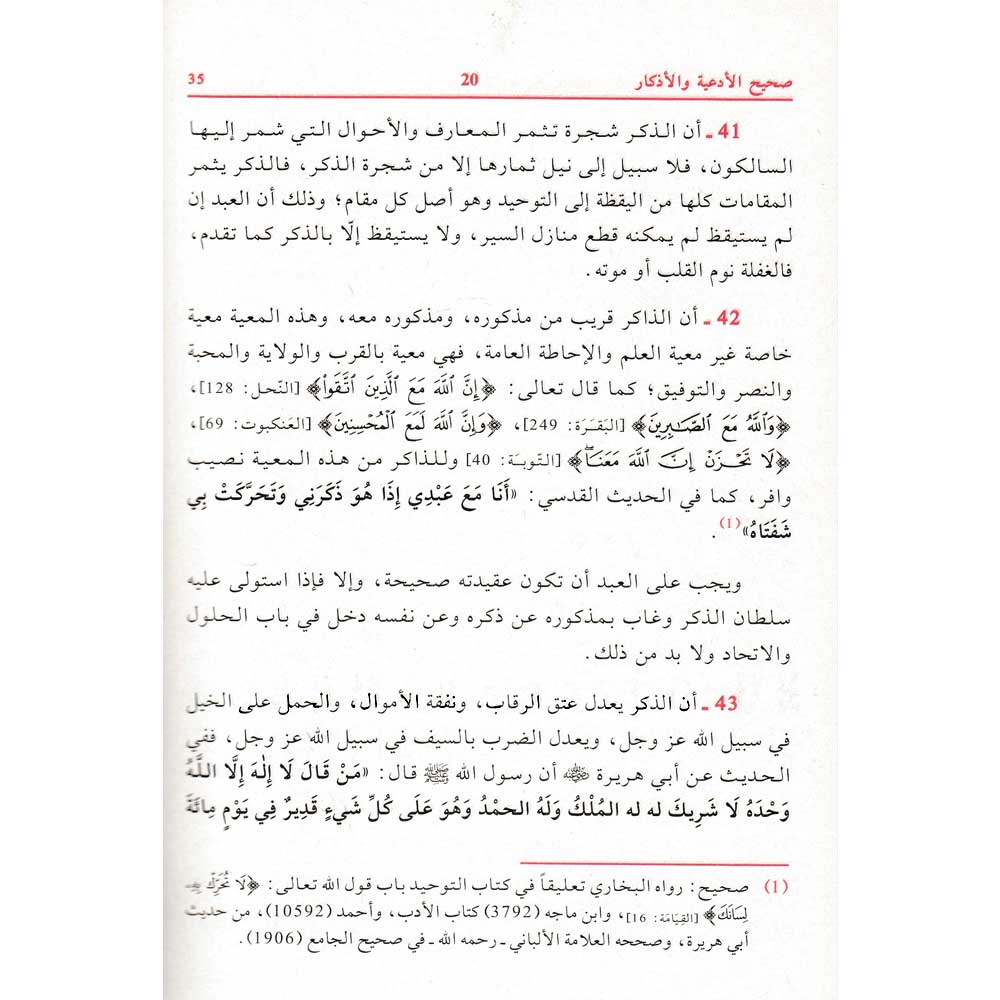 صحيح الأدعية والأذكار 20 35
41 ـ أن الذكر شجرة تثمر المعارف والأحوال التي شمر إليها
السالكون، فلا سبيل إلى نيل ثمارها إلا من شجرة الذكر، فالذكر يثمر
المقامات كلها من اليقظة إلى التوحيد وهو أصل كل مقام؛ وذلك أن العبد إن
لم يستيقظ لم يمكنه قطع منازل السير، ولا يستيقظ إلّا بالذكر كما تقدم،
فالغفلة نوم القلب أو موته.
42 ـ أن الذاكر قريب من مذكوره، ومذكوره معه، وهذه المعية معية
خاصة غير معية العلم والإحاطة العامة، فهي معية بالقرب والولاية والمحبة
والنصر والتوفيق؛ كما قال تعالى: ﴿إِنَّ ٱللَّهَ مَعَ ٱلَّذِينَ ٱتَّقَواْ﴾ [النّحل: 128]،
﴿وَٱللَّهُ مَعَ ٱلصَّٰبِرِينَ﴾ [البَقَرَة: 249]، ﴿وَإِنَّ ٱللَّهَ لَمَعَ ٱلْمُحْسِنِينَ﴾ [العَنكبوت: 69]،
﴿لَا تَحْزَنْ إِنَّ ٱللَّهَ مَعَنَاۖ﴾ [التّوبَة: 40] وللذاكر من هذه المعية نصيب
وافر، كما في الحديث القدسي: «أَنَا مَعَ عَبْدِي إِذَا هُوَ ذَكَرَنِي وَتَحَرَّكَتْ بِي
شَفَتَاهُ»(1).
ويجب على العبد أن تكون عقيدته صحيحة، وإلا فإذا استولى عليه
سلطان الذكر وغاب بمذكوره عن ذكره وعن نفسه دخل في باب الحلول
والاتحاد ولا بد من ذلك.
43 ـ أن الذكر يعدل عتق الرقاب، ونفقة الأموال، والحمل على الخيل
في سبيل الله عز وجل، ويعدل الضرب بالسيف في سبيل الله عز وجل، ففي
الحديث عن أبي هريرة رضي الله عنه أن رسول الله ﷺ قال: «مَنْ قَالَ لَا إِلٰهَ إِلَّا اللَّهُ
وَحْدَهُ لَا شَرِيكَ له له المُلْكُ وَلَهُ الحمْدُ وَهُوَ عَلَى كُلِّ شَيءٍ قَدِيرٌ فِي يَوْمٍ مِائَةَ
(1) صحيح: رواه البخاري تعليقاً في كتاب التوحيد باب قول الله تعالى: ﴿لَا تُحَرِّكْ بِهِۦ
لِسَانَكَ﴾ [القِيَامَة: 16]، وابن ماجه (3792) كتاب الأدب، وأحمد (10592)، من حديث
أبي هريرة، وصححه العلامة الألباني ـ رحمه الله ـ في صحيح الجامع (1906).